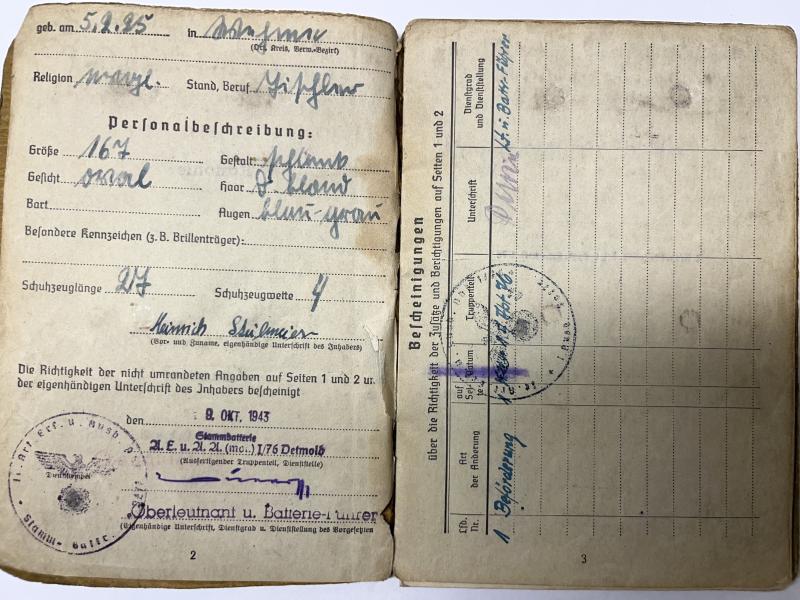 geb. am 5.9.25 in
(Ort, Kreis, Verw.-Bezirk)
Religion evgl. Stand, Beruf Tischler
Personalbeschreibung:
Größe 167 Gestalt schlank
Gesicht oval Haar d. blond
Bart Augen blau-grau
Besondere Kennzeichen (z. B. Brillenträger):
Schuhzeuglänge 27 Schuhzeugweite 4
Heinrich
(Vor- und Zuname, eigenhändige Unterschrift des Inhabers)
Die Richtigkeit der nicht umrandeten Angaben auf Seiten 1 und 2 u
der eigenhändigen Unterschrift des Inhabers bescheinigt
den 9. OKT. 1943
Stammbatterie
A. E. u. A. A. (mo.) I/76 Detmold
(Ausfertigender Truppenteil, Dienststelle)
Oberleutnant u. Batterie-Führer
(Eigenhändige Unterschrift, Dienstgrad u. Dienststellung des Vorgesetzten)
Dienststempel
2
Bescheinigungen
über die Richtigkeit der Zusätze und Berichtigungen auf Seiten 1 und 2
Lfd. Nr.
Art der Änderung
auf Sei- te
Datum
Truppenteil
Unterschrift
Dienstgrad und Dienststellung
1 Beförderung 1 Lt. u. Battr.-Führer
3